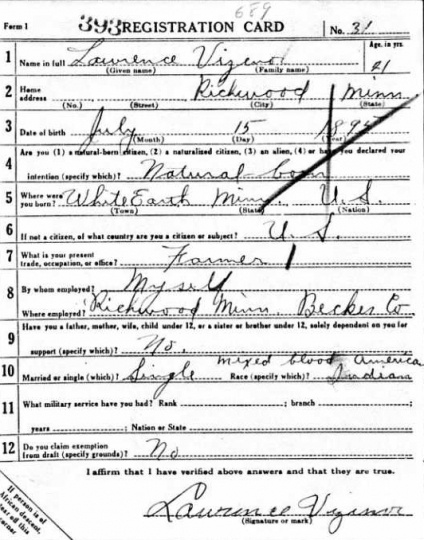 689
Form 1 393 REGISTRATION CARD No. 31
1 Name in full Lawrence Vizenor Age, in yrs. 21
(Given name) (Family name)
2 Home address Richwood Minn
(No.) (Street) (City) (State)
3 Date of birth July 15 1895
(Month) (Day) (Year)
4 Are you (1) a natural-born citizen, (2) a naturalized citizen, (3) an alien, (4) or have you declared your
intention (specify which)? Natural born
5 Where were you born? White Earth Minn. U.S.
(Town) (State) (Nation)
6 If not a citizen, of what country are you a citizen or subject? U.S.
7 What is your present trade, occupation, or office? Farmer
8 By whom employed? Myself
Where employed? Richwood Minn. Becker Co
9 Have you a father, mother, wife, child under 12, or a sister or brother under 12, solely dependent on you for
support (specify which)? No.
mixed blood America
10 Married or single (which)? Single Race (specify which)? Indian
11 What military service have you had? Rank ; branch ;
years ; Nation or State
12 Do you claim exemption from draft (specify grounds)? No
I affirm that I have verified above answers and that they are true.
Lawrence Vizenor
(Signature or mark)
If person is of
African descent,
tear off this
corner